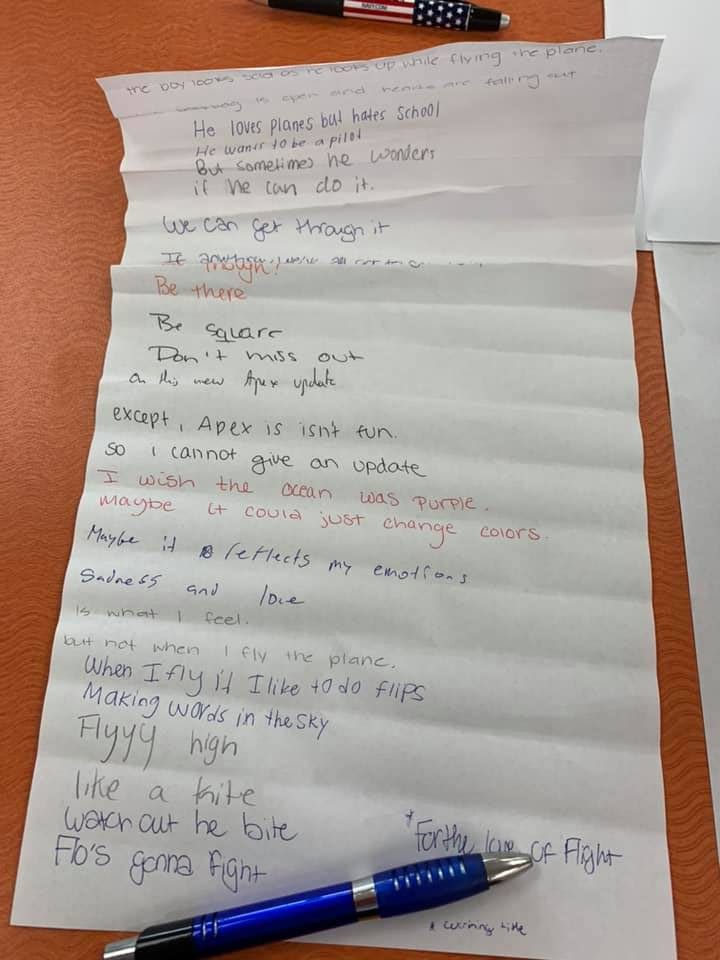 NAVY.COM
the boy looks sad as he looks up while flying the plane.
is open and are falling out
He loves planes but hates school
He wants to be a pilot
But sometimes he wonders
if he can do it.
We can get through it
If
though!
Be there
Be square
Don't miss out
On this new Apex update
except, Apex is isn't fun.
so I cannot give an update
I wish the ocean was purple.
Maybe it could just change colors.
Maybe it reflects my emotions
Sadness and love
is what I feel.
but not when I fly the plane.
When I fly it I like to do flips
Making words in the sky
Flyyy high
like a kite
watch out he bite
Flo's gonna fight
*For the love of Flight
* working title